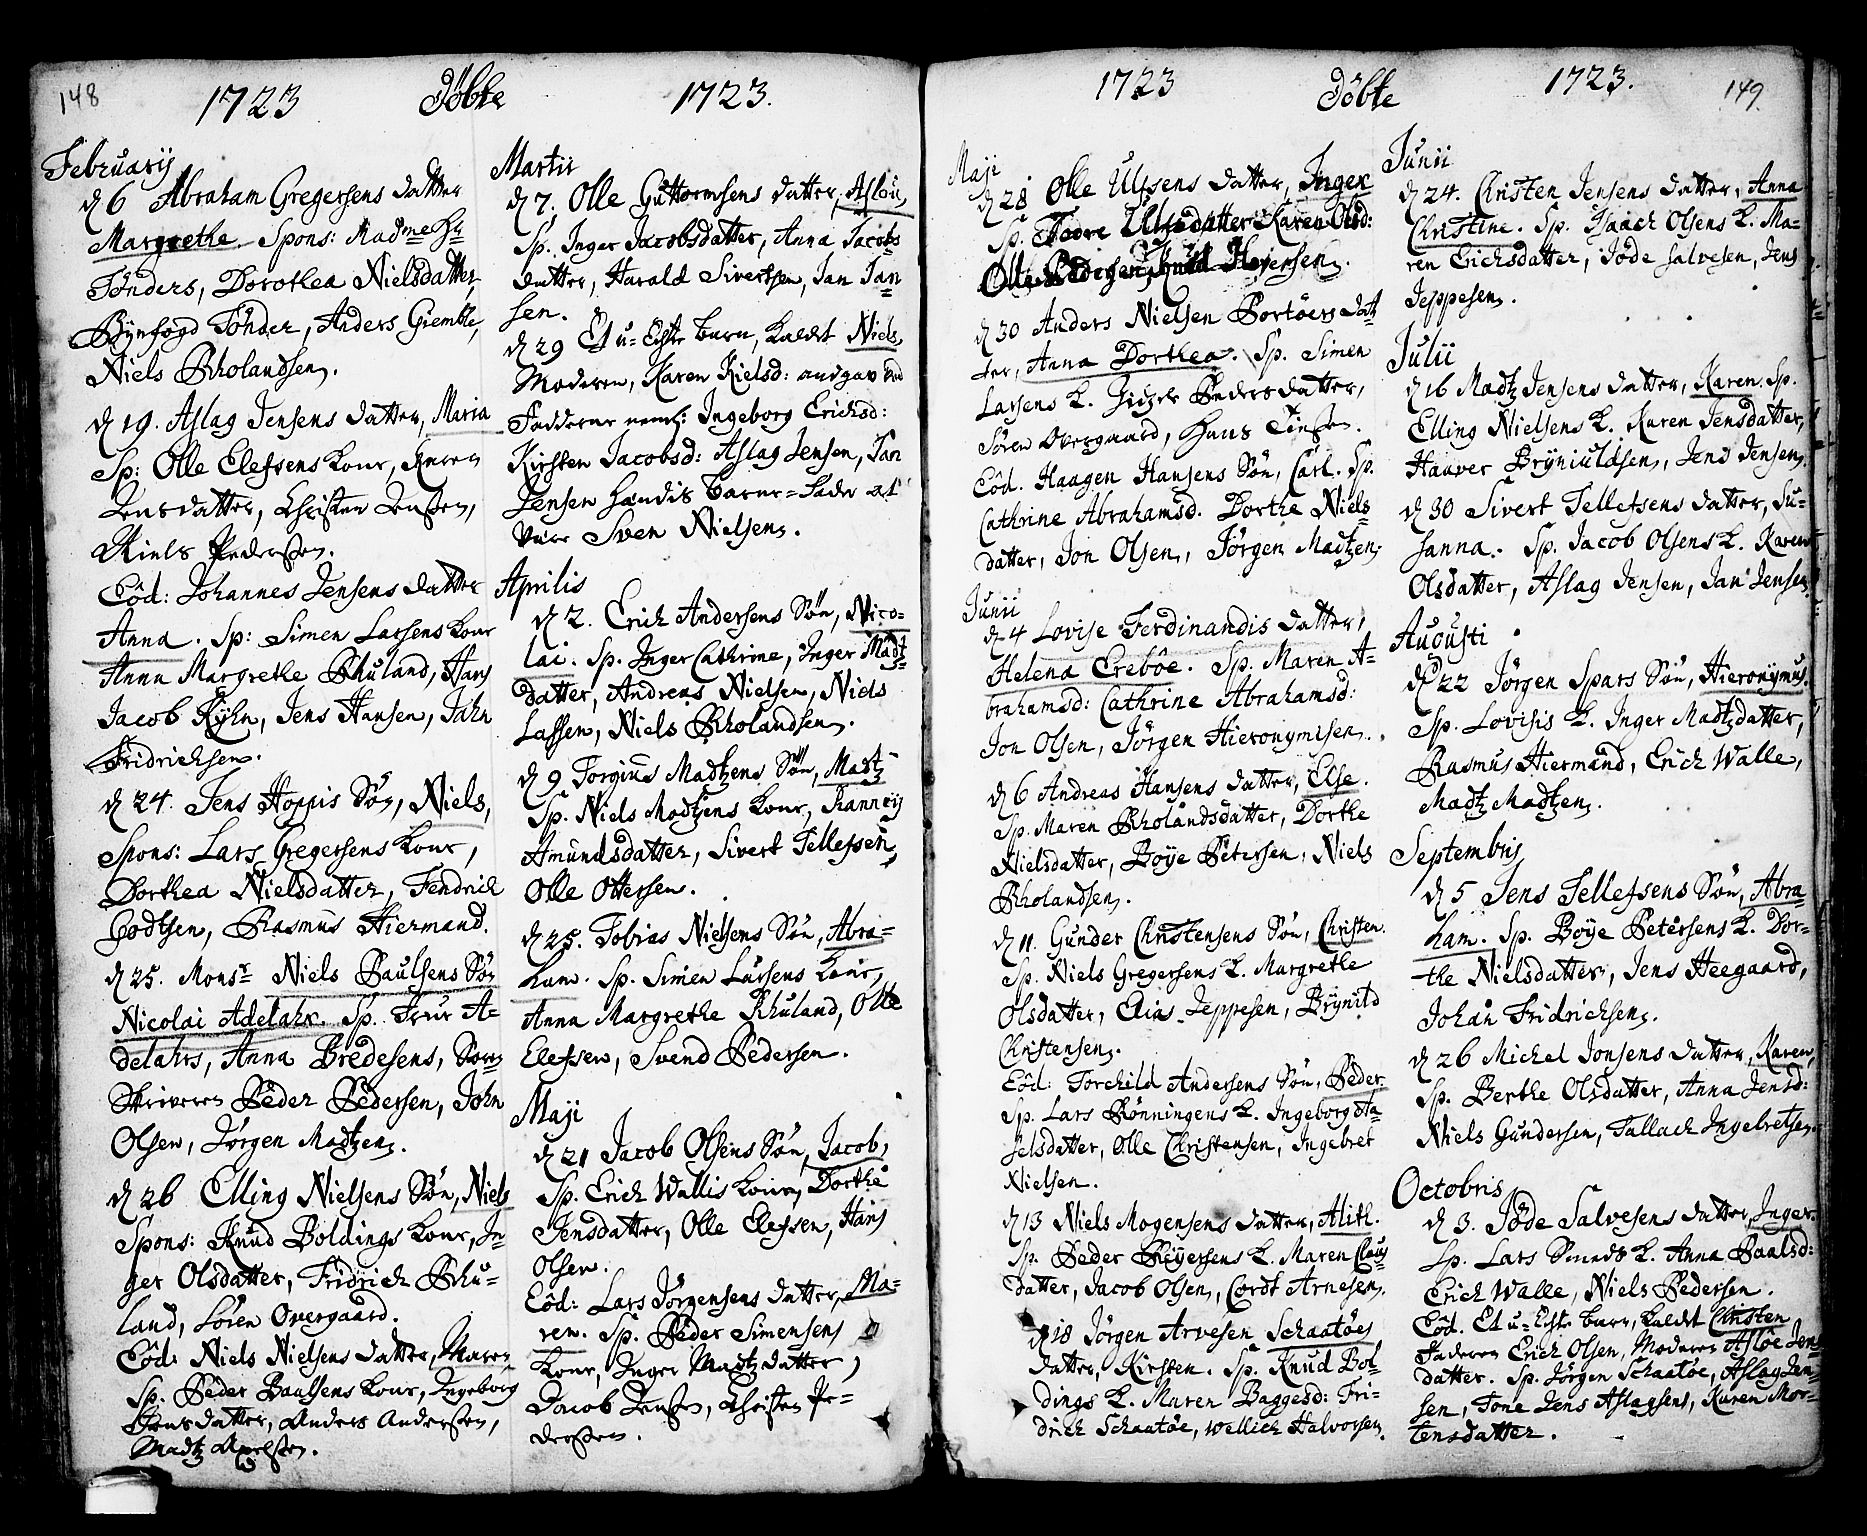 148
1723 Döbte 1723.
Februarij
d 6 Abraham Gregersens datter
Margrethe. Spons: Madme Hr
Tönders, Dorothea Nielsdatter,
Bÿnfogd Tönder, Anders Giemble,
Niels Rholandsen.
d 19. Aslag Jensens datter, Maria
Sp: Olle Elefsens konr, Karen
Jensdatter, Christen Jenssen,
Niels Pederssen.
Eôd: Johannes Jensens datter
Anna. Sp: Simen Larsens konr
Anna Margrethe Rhuland, Hans
Jacob Kÿhn, Jens Hansen, John
Fridrichsen.
d 24. Jens Hoppis Sön, Niels,
Spons: Lars Gregersens konr,
Dorthea Nielsdatter, Fendrich
Godtsen, Rasmus Hiermand.
d 25. Monsr Niels Paulsens Sön
Nicolai Adelahr. Sp. Frur A=
delahrs, Anna Bredesens, Sorn=
Skriveren Peder Pedersen, John
Olsen, Jörgen Madtzen.
d 26 Elling Nielsens Sön, Niels
Spons: Knud Boldings konr, In=
ger Olsdatter, Fridrich Rhu=
land, Sören Overgaard.
Eôd: Niels Nielsens datter, Maren
Sp. Peder Paulsens konr, Ingeborg
Jensdatter, Anders Anderssen,
Madtz Axelssen.
Martii
d 7. Olle Guttormsens datter, Aslou,
Sp. Inger Jacobsdatter, Anna Jacobs
datter, Harald Sivertsen, Jan Jan=
sen.
d 29 Et u=Egte barn, kaldt Niels,
Moderen, Karen Kielsd: angav ved
Fadderne neml: Ingeborg Erichsd:
Kirsten Jacobsd: Aslag Jensen, Jan
Jensen Hændis barne=Fader at
være Sven Nielsen.
Aprilis
d 2. Erich Andersens Sön, Nico=
lai. Sp. Inger Cathrine, Inger Madtz=
datter, Andreas Nielsen, Niels
Lassen, Niels Rholandsen.
d 9 Torgius Madtzens Sön, Madtz
Sp. Niels Madtzens konr, Ranneÿ
Amundsdatter, Sivert Tellefsen,
Olle Ottersen.
d 25. Tobias Nielsens Sön, Abra=
ham. Sp. Simen Larsens konr,
Anna Margrethe Rhuland, Olle
Elefsen, Svend Pedersen.
Maji
d 21 Jacob Olsens Sön, Jacob,
Sp. Erich Wallis konr, Dorthe
Jensdatter, Olle Elefsen, Hans
Olsen.
Eôd: Lars Jörgensens datter, Ma=
ren. Sp. Peder Simensens
konr, Inger Madtzdatter,
Jacob Jenssen, Christen Pe=
derssen.
1723 Döbte 1723. 149.
Maji
d 28 Olle Ulfsens datter, Inger
Sp. Tore Ulfsdatter Karen Olsd:
Olle Pedersen, Knud Hejersen.
d 30 Anders Nielsen Portöers dat=
ter, Anna Dorthea. Sp. Simen
Larsens k. Pedersdatter,
Sören Overgaard, Hans Jenssen.
Eôd. Haagen Hansens Sön, Carl. Sp.
Cathrine Abrahamsd. Dorthe Niels=
datter, Jon Olsen, Jörgen Madtzen.
Junii
d 4 Lovise Ferdinandis datter,
Helena Ereböe. Sp. Maren A=
brahamsd: Cathrine Abrahamsd:
Jon Olsen, Jörgen Hieronymisen.
d 6 Andreas Hansens datter, Else.
Sp. Maren Rholandsdatter, Dorthe
Nielsdatter, Boÿe Petersen, Niels
Rholandsen.
d 11. Gunder Christensens Sön, Christen.
Sp. Niels Gregersens k. Margrethe
Olsdatter, Elias Jeppesen, Brÿnild
Christensen.
Eôd: Torchild Andersens Sön, Peder
Sp. Lars Rönningens k. Ingeborg Ha=
selsdatter, Olle Christensen, Ingebret
Nielsen.
d 13 Niels Mogensens datter, Alith.
Sp. Peder Reÿersens k. Maren Claus=
datter, Jacob Olsen, Cordt Arnesen.
d 18 Jörgen Arvesen Schaatöes
datter, Kirsten. Sp. Knud Bol=
dings k. Maren Baggesd: Fri=
drich Schaatöe, Wellich Halvorsen.
Junii
d 24. Christen Jensens datter, Anna
Christine. Sp. Isaach Olsens k. Ma=
ren Erichsdatter, Jöde Salvesen, Jens
Jeppesen.
Julii
d 16 Madtz Jensens datter, Karen. Sp.
Elling Nielsens k. Karen Jensdatter,
Haaver Brÿniuldsen, Jens Jensen.
d 30 Sivert Tellefsens datter, Su=
sanna. Sp. Jacob Olsens k. Karen
Olsdatter, Aslag Jensen, Jan Jensen.
Augusti
d 22 Jörgen Spars Sön, Hieronÿmus.
Sp. Lovisis k. Inger Madtzdatter,
Rasmus Hiermand, Erich Walle,
Madtz Madtzen.
Septembris
d 5 Jens Tellefsens Sön, Abra=
ham. Sp. Boÿe Petersens k. Dor=
the Nielsdatter, Jens Heegaard,
Johan Fridrichsen.
d 26 Michel Jonsens datter, Karen,
Sp. Berthe Olsdatter, Anna Jensd:
Niels Gundersen, Tallach Ingebretsen.
Octobris
d 3. Jöde Salvesens datter, Inger.
Sp. Lars Smeds k. Anna Paalsd:
Erich Walle, Niels Pedersen.
Eôd. Et u=Egte barn, kaldt Christen
Faderen Erich Olsen, Moderen Aslôe Jens
datter. Sp. Jörgen Schaatöe, Aslag Jen=
sen, Tone Jens Aslagsens, Karen Mor=
tensdatter.